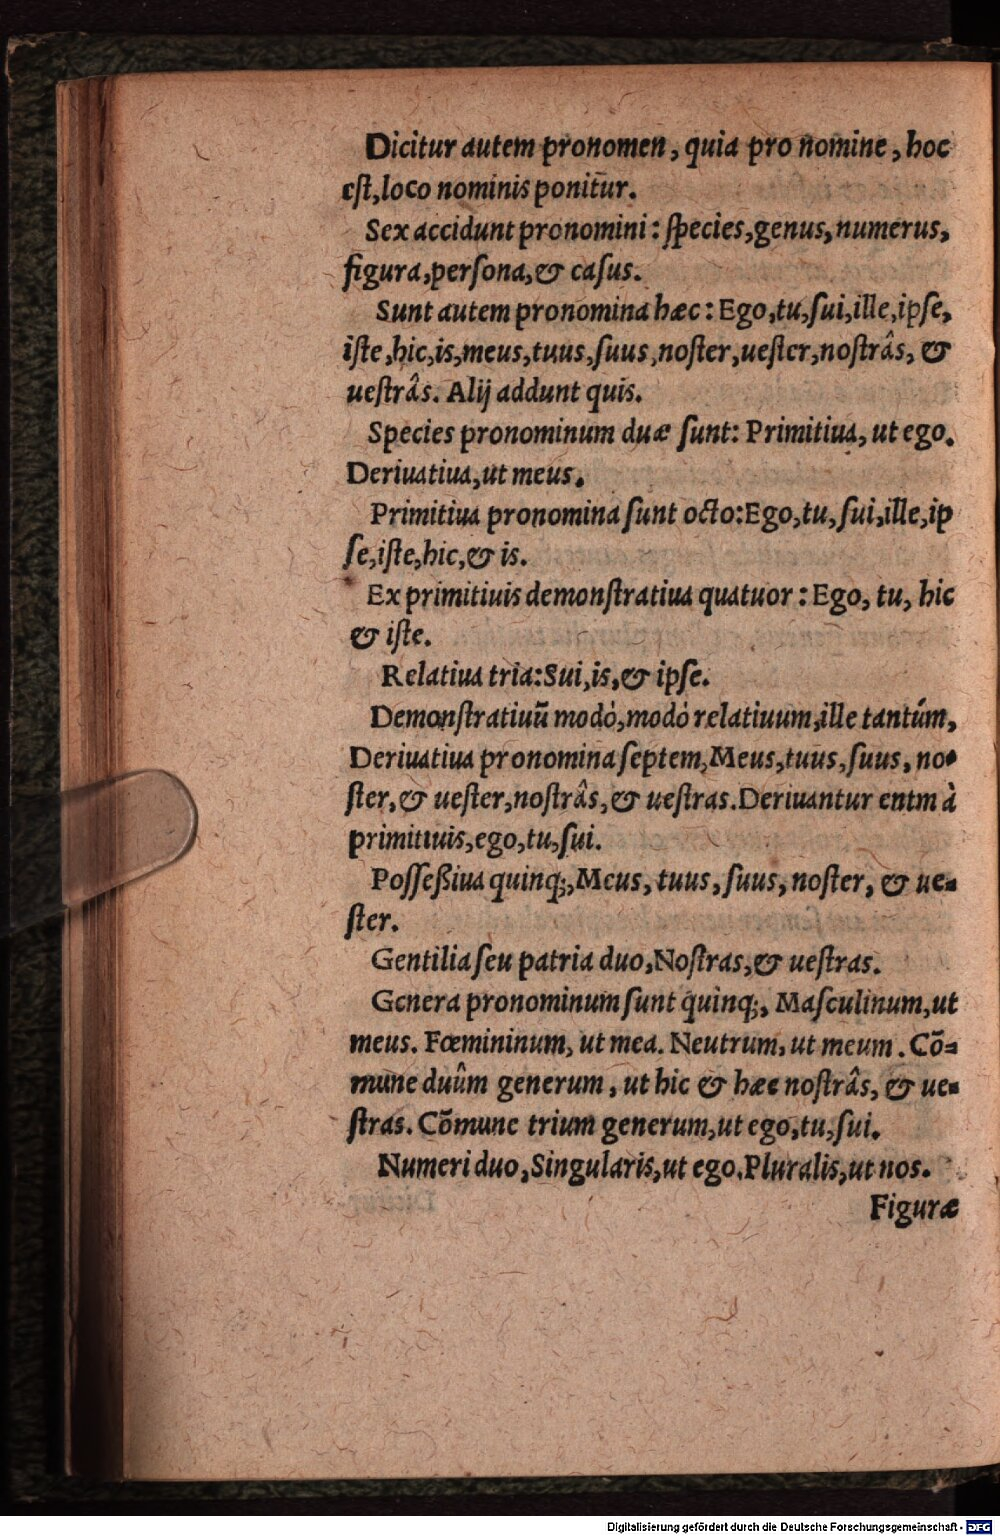 Dicitur autem pronomen, quia pro nomine, hoc
est, loco nominis ponitur.
Sex accidunt pronomini: ſpecies, genus, numerus,
figura, perſona, & caſus.
Sunt autem pronomina hæc: Ego, tu, ſui, ille, ipſe,
iſte, hic, is, meus, tuus, ſuus, noſter, ueſter, noſtrâs, &
ueſtrâs. Alij addunt quis.
Species pronominum duæ ſunt: Primitiua, ut ego.
Deriuatiua, ut meus.
Primitiua pronomina ſunt octo: Ego, tu, ſui, ille, ip
ſe, iſte, hic, & is.
Ex primitiuis demonſtratiua quatuor: Ego, tu, hic
& iſte.
Relatiua tria: Sui, is, & ipſe.
Demonſtratiuū modò, modò relatiuum, ille tantúm,
Deriuatiua pronomina ſeptem, Meus, tuus, ſuus, no-
ſter, & ueſter, noſtrâs, & ueſtras. Deriuantur enim à
primitiuis, ego, tu, ſui.
Poſſeßiua quinq;, Meus, tuus, ſuus, noſter, & ue-
ſter.
Gentilia ſeu patria duo, Noſtras, & ueſtras.
Genera pronominum ſunt quinq;, Maſculinum, ut
meus. Fœmininum, ut mea. Neutrum, ut meum. Cō-
mune duûm generum, ut hic & hæc noſtrâs, & ue-
ſtras. Cōmune trium generum, ut ego, tu, ſui.
Numeri duo, Singularis, ut ego. Pluralis, ut nos.
Figuræ
Digitalisierung gefördert durch die Deutsche Forschungsgemeinschaft - DFG